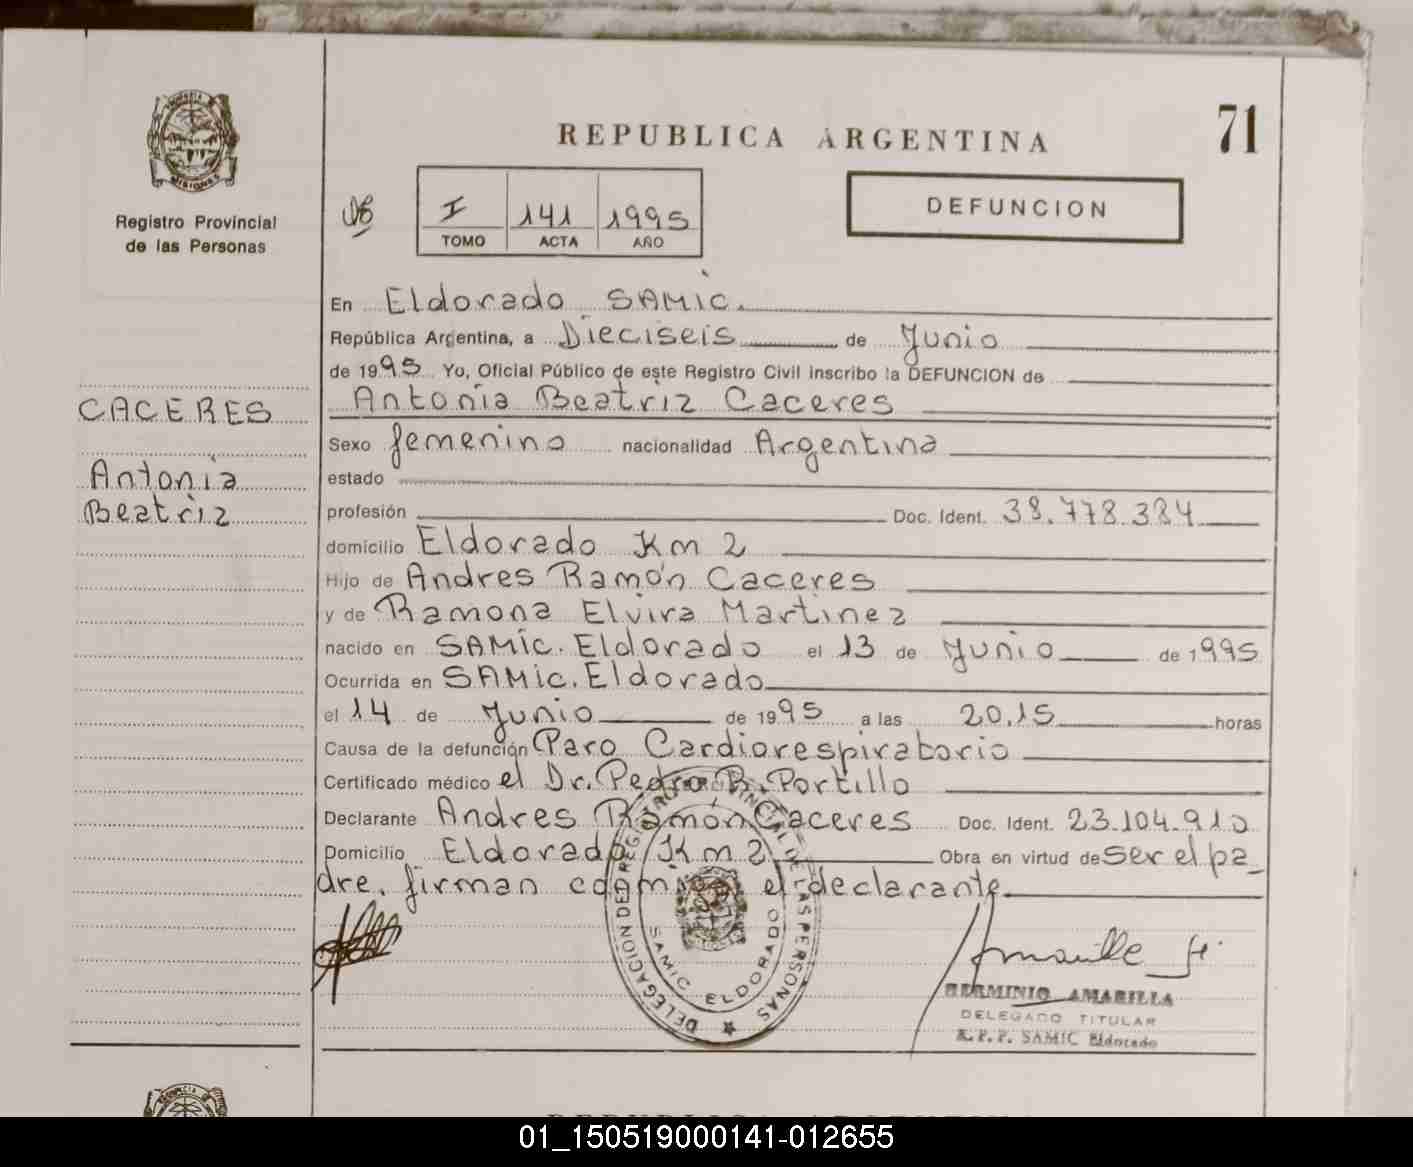 71
REPUBLICA ARGENTINA
PROVINCIA DE
MISIONES
Registro Provincial
de las Personas
I 141 1995
TOMO ACTA AÑO
DEFUNCION
En Eldorado SAMIC.
República Argentina, a Dieciseis de Junio
de 1995 Yo, Oficial Público de este Registro Civil inscribo la DEFUNCION de
CACERES
Antonia
Beatriz
Antonia Beatriz Caceres
Sexo femenino nacionalidad Argentina
estado
profesión Doc. Ident. 38.778.384
domicilio Eldorado Km 2
Hijo de Andres Ramón Caceres
y de Ramona Elvira Martinez
nacido en SAMIC. Eldorado el 13 de Junio de 1995
Ocurrida en SAMic. Eldorado
el 14 de Junio de 1995 a las 20,15 horas
Causa de la defunción Paro Cardiorespiratorio
Certificado médico el Dr. Pedro B. Portillo
Declarante Andres Ramón Caceres Doc. Ident. 23.104.910
Domicilio Eldorado Km 2 Obra en virtud de Ser el pa_
dre. firman conmigo el declarante
DELEGACION DEL REGISTRO PROVINCIAL DE LAS PERSONAS
SAMIC ELDORADO
HERMINIO AMARILLA
DELEGADO TITULAR
R.P.P. SAMIC Eldorado
REPUBLICA ARGENTINA
01_150519000141-012655